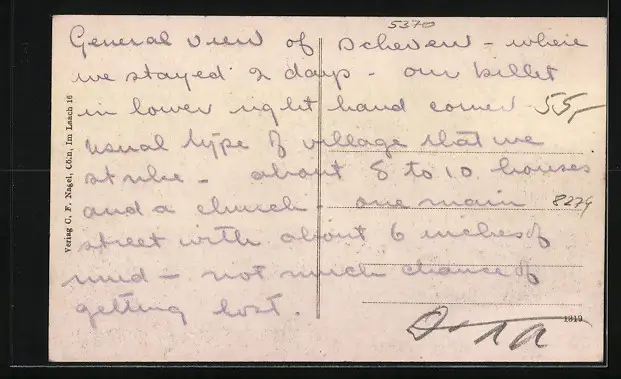 5370
General view of Scheven - where
we stayed 2 days - our billet
in lower right hand corner 55,-
usual type of village that we
strike - about 8 to 10 houses
and a church - one main 8279
street with about 6 inches of
mud - not much chance of
getting lost.
Verlag C. F. Nagel, Cöln, Im Laach 16
1319